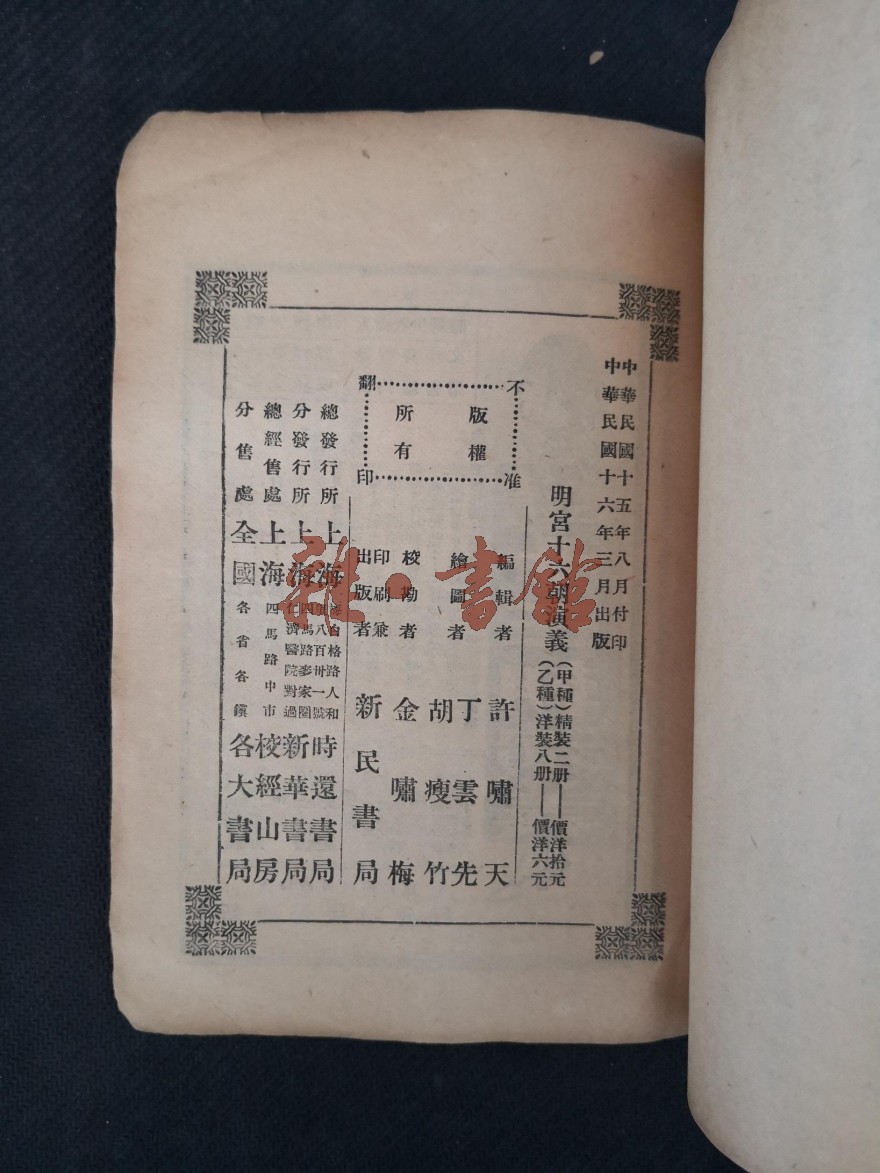 中華民國十五年八月付印
中華民國十六年三月出版
明宮十六朝演義
(甲種)精裝二册——價洋拾元
(乙種)洋裝八册——價洋六元
不准翻印
版權所有
編輯者 許嘯天
繪圖者 丁雲先 胡瘦竹
校勘者 金嘯梅
印刷兼出版者 新民書局
總發行所 上海 白格路人和 八百卅一號 時還書局
分發行所 上海 四馬路麥家圈 仁濟醫院對過 新華書局
總經售處 上海 四馬路中市 校經山房
分售處 全國 各省各鎮 各大書局
雜·書館